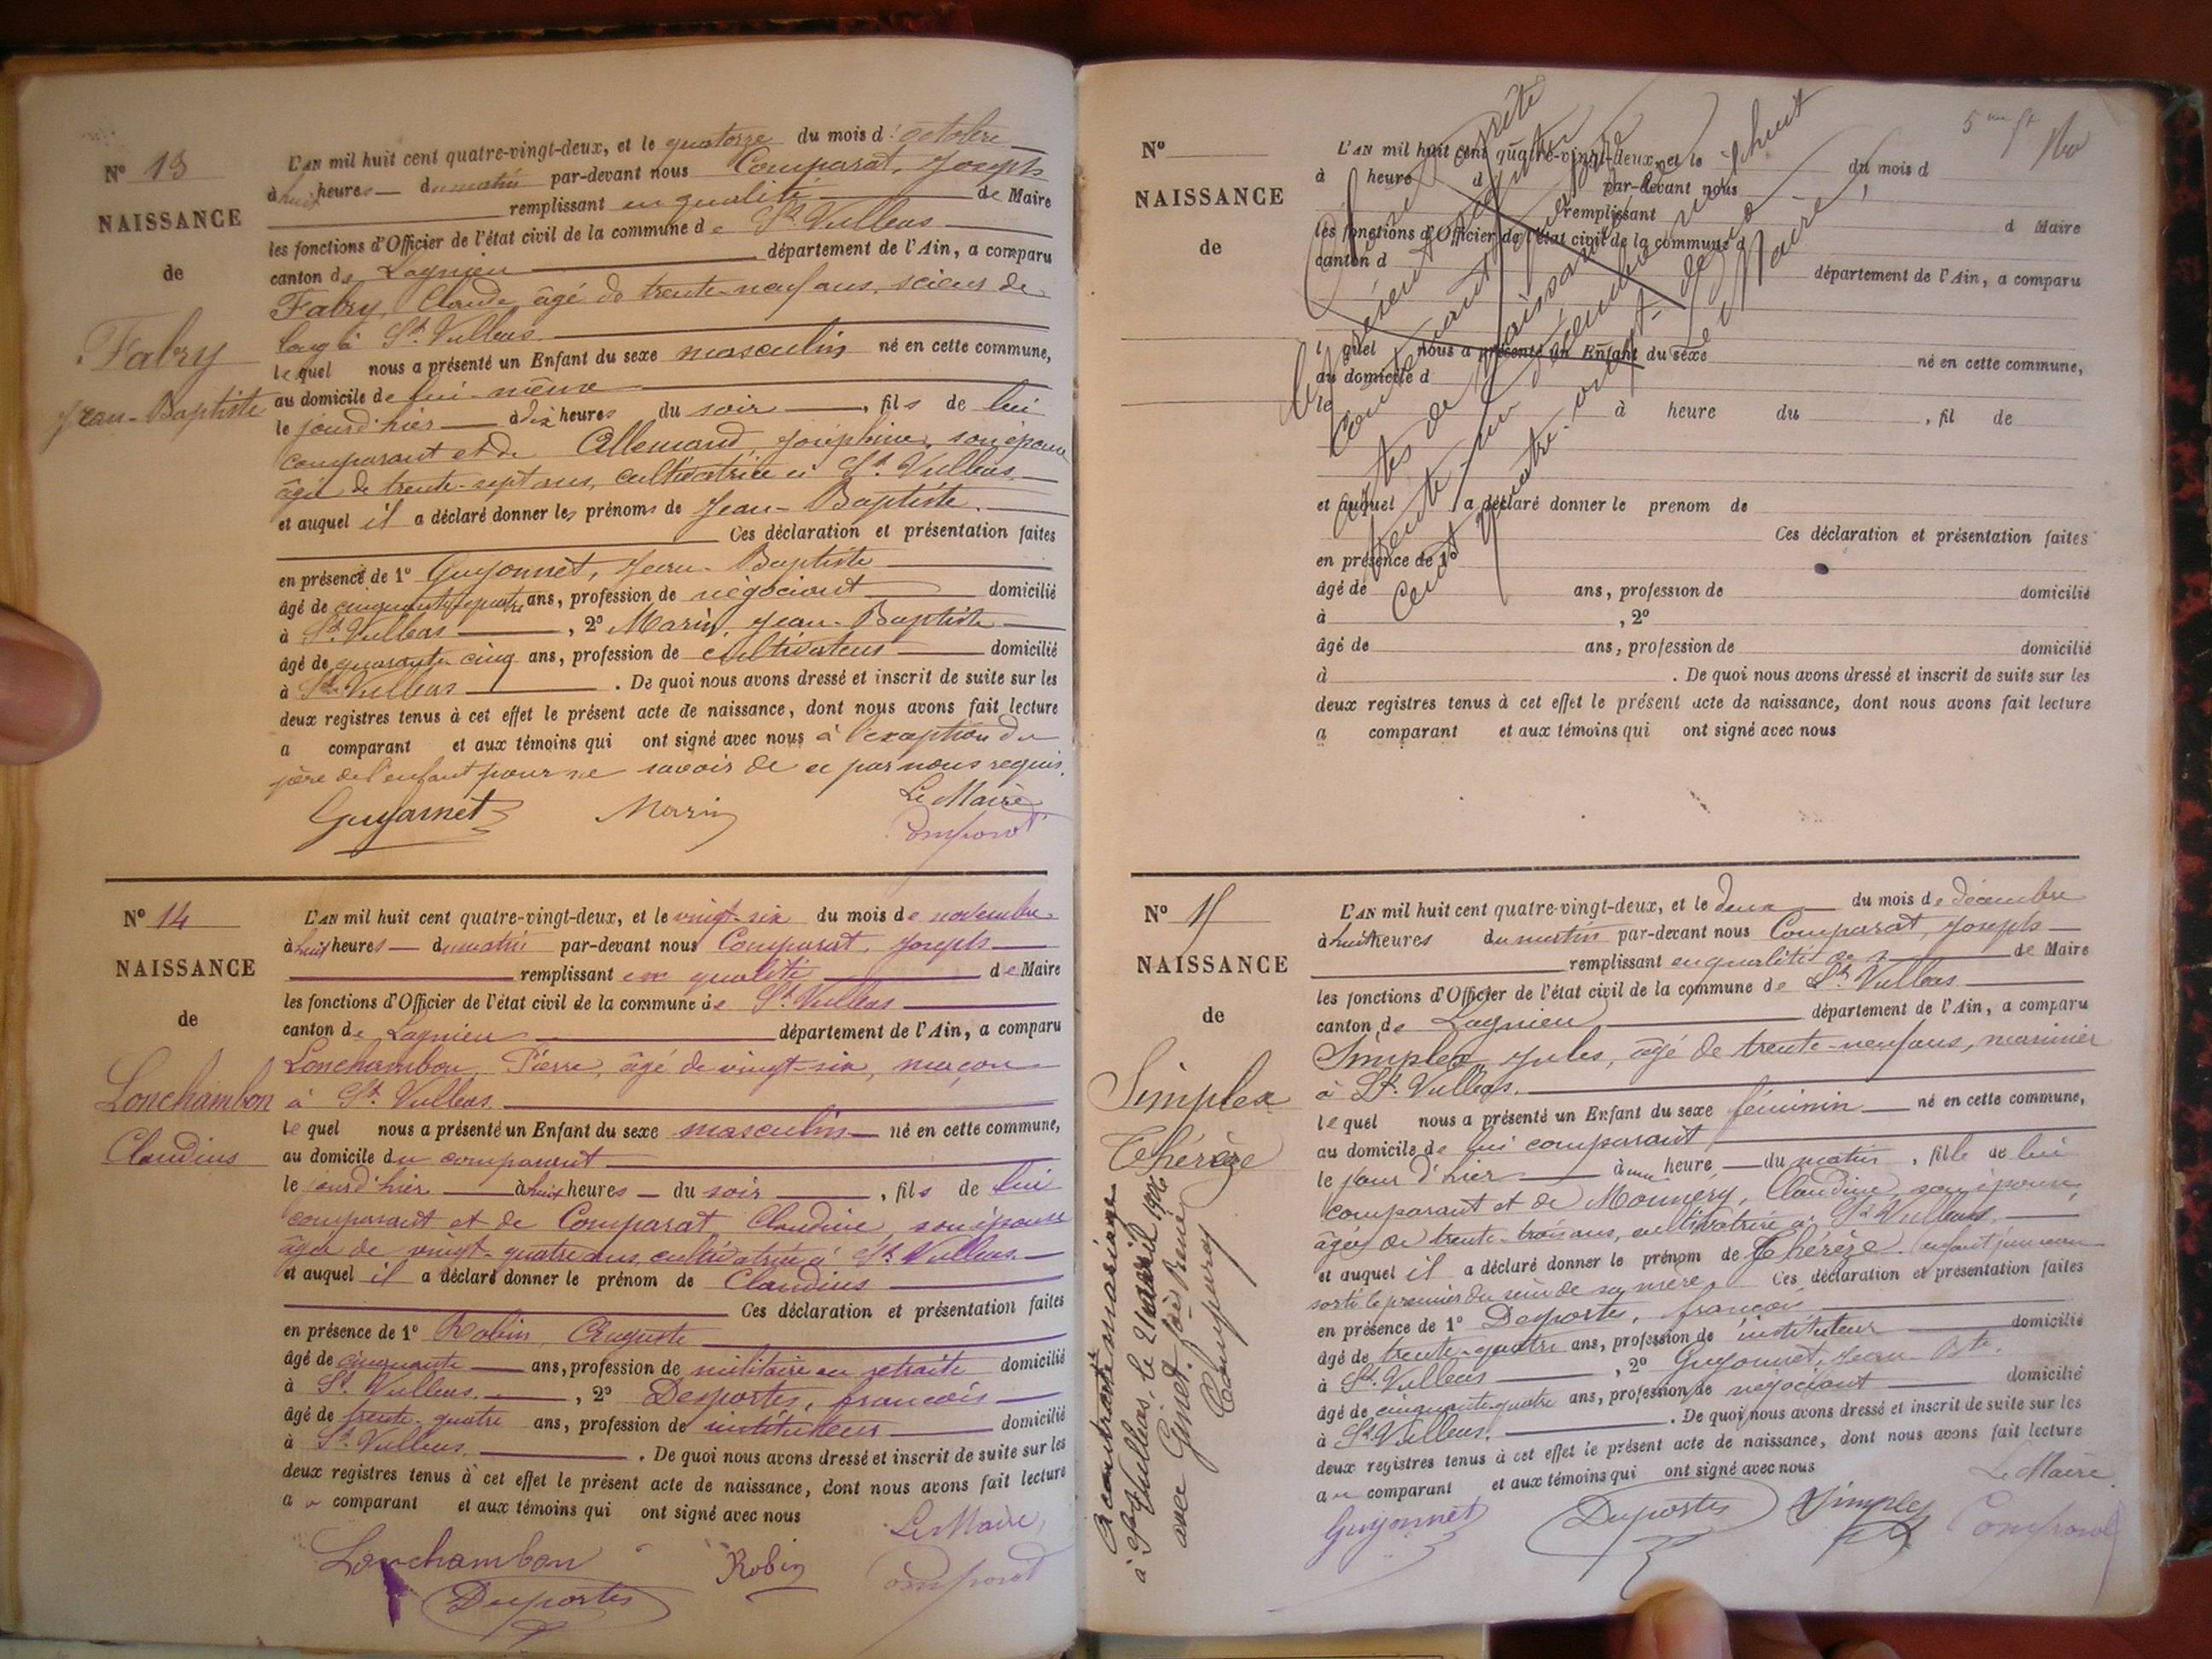 N° 13
NAISSANCE
de
Fabry
Jean-Baptiste
L'AN mil huit cent quatre-vingt-deux, et le quatorze du mois d'octobre
à huit heures du matin par-devant nous Comparat, Joseph
remplissant en qualité de Maire
les fonctions d'Officier de l'état civil de la commune de St. Vulbas
canton de Lagnieu département de l'Ain, a comparu
Fabry, Claude, âgé de trente-neuf ans, scieur de
long à St. Vulbas
lequel nous a présenté un Enfant du sexe masculin né en cette commune,
au domicile de lui-même
le jourd'hier à dix heures du soir, fils de lui
comparant et de Allemand, Joséphine, son épouse
âgée de trente-sept ans, cultivatrice à St. Vulbas
et auquel il a déclaré donner les prénoms de Jean-Baptiste.
Ces déclaration et présentation faites
en présence de 1° Guyonnet, Jean-Baptiste
âgé de cinquante quatre ans, profession de négociant domicilié
à St. Vulbas, 2° Marin, Jean-Baptiste
âgé de quarante cinq ans, profession de cultivateur domicilié
à St. Vulbas. De quoi nous avons dressé et inscrit de suite sur les
deux registres tenus à cet effet le présent acte de naissance, dont nous avons fait lecture
a comparant et aux témoins qui ont signé avec nous à l'exception du
père de l'enfant pour ne savoir de ce par nous requis.
Guyonnet Marin Le Maire
Comparat
N° 14
NAISSANCE
de
Lonchambon
Claudius
L'AN mil huit cent quatre-vingt-deux, et le vingt-six du mois de novembre
à huit heures du matin par-devant nous Comparat, Joseph
remplissant en qualité de Maire
les fonctions d'Officier de l'état civil de la commune de St. Vulbas
canton de Lagnieu département de l'Ain, a comparu
Lonchambon, Pierre, âgé de vingt-six, maçon
à St. Vulbas.
lequel nous a présenté un Enfant du sexe masculin né en cette commune,
au domicile du comparant
le jourd'hier à huit heures du soir, fils de lui
comparant et de Comparat Claudine, son épouse
âgée de vingt-quatre ans, cultivatrice à St. Vulbas.
et auquel il a déclaré donner le prénom de Claudius
Ces déclaration et présentation faites
en présence de 1° Robin, Auguste
âgé de cinquante ans, profession de militaire en retraite domicilié
à St. Vulbas., 2° Desportes, françois
âgé de trente-quatre ans, profession de instituteur domicilié
à St. Vulbas. De quoi nous avons dressé et inscrit de suite sur les
deux registres tenus à cet effet le présent acte de naissance, dont nous avons fait lecture
au comparant et aux témoins qui ont signé avec nous
Le Maire
Lonchambon Robin Comparat
Desportes
5
N°
NAISSANCE
de
L'AN mil huit cent quatre-vingt-deux, et le du mois d
à heure d par-devant nous
remplissant d Maire
les fonctions d'Officier de l'état civil de la commune d
canton d département de l'Ain, a comparu
l quel nous a présenté un Enfant du sexe né en cette commune,
au domicile d
le à heure du, fil de
et auquel a déclaré donner le prenom de
Ces déclaration et présentation faites
en présence de 1°
âgé de ans, profession de domicilié
à, 2°
âgé de ans, profession de domicilié
à. De quoi nous avons dressé et inscrit de suite sur les
deux registres tenus à cet effet le présent acte de naissance, dont nous avons fait lecture
a comparant et aux témoins qui ont signé avec nous
arrêté
le présent registre
contenant
actes de naissance
trente-un décembre mil huit
cent quatre-vingt-deux
Le Maire,
N° 15
NAISSANCE
de
Simplex
Thérèze
A contracté mariage
à St Vulbas, le 21 avril 1906
avec Ginet
Comparat
L'AN mil huit cent quatre-vingt-deux, et le deux du mois de décembre
à huit heures du matin par-devant nous Comparat, Joseph
remplissant en qualité de Maire
les fonctions d'Officier de l'état civil de la commune de St. Vulbas
canton de Lagnieu département de l'Ain, a comparu
Simplex, Jules, âgé de trente-neuf ans, marinier
à St. Vulbas.
lequel nous a présenté un Enfant du sexe féminin né en cette commune,
au domicile de lui comparant
le jour d'hier à une heure du matin, fille de lui
comparant et de Monnery, Claudine, son épouse,
âgée de trente-trois ans, cultivatrice à St. Vulbas,
et auquel il a déclaré donner le prénom de Thérèze. enfant jumeau
sorti le premier du sein de sa mère. Ces déclaration et présentation faites
en présence de 1° Desportes, françois
âgé de trente-quatre ans, profession de instituteur domicilié
à St. Vulbas, 2° Guyonnet, Jean-Bte.
âgé de cinquante-quatre ans, profession de négociant domicilié
à St. Vulbas. De quoi nous avons dressé et inscrit de suite sur les
deux registres tenus à cet effet le présent acte de naissance, dont nous avons fait lecture
au comparant et aux témoins qui ont signé avec nous
Le Maire
Guyonnet Desportes Simplex Comparat